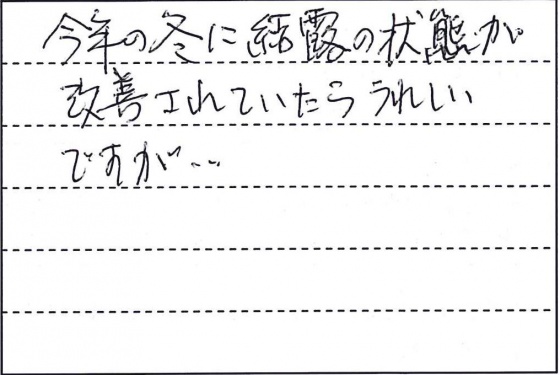 今年の冬に結露の状態が
改善されていたらうれしい
ですが‥